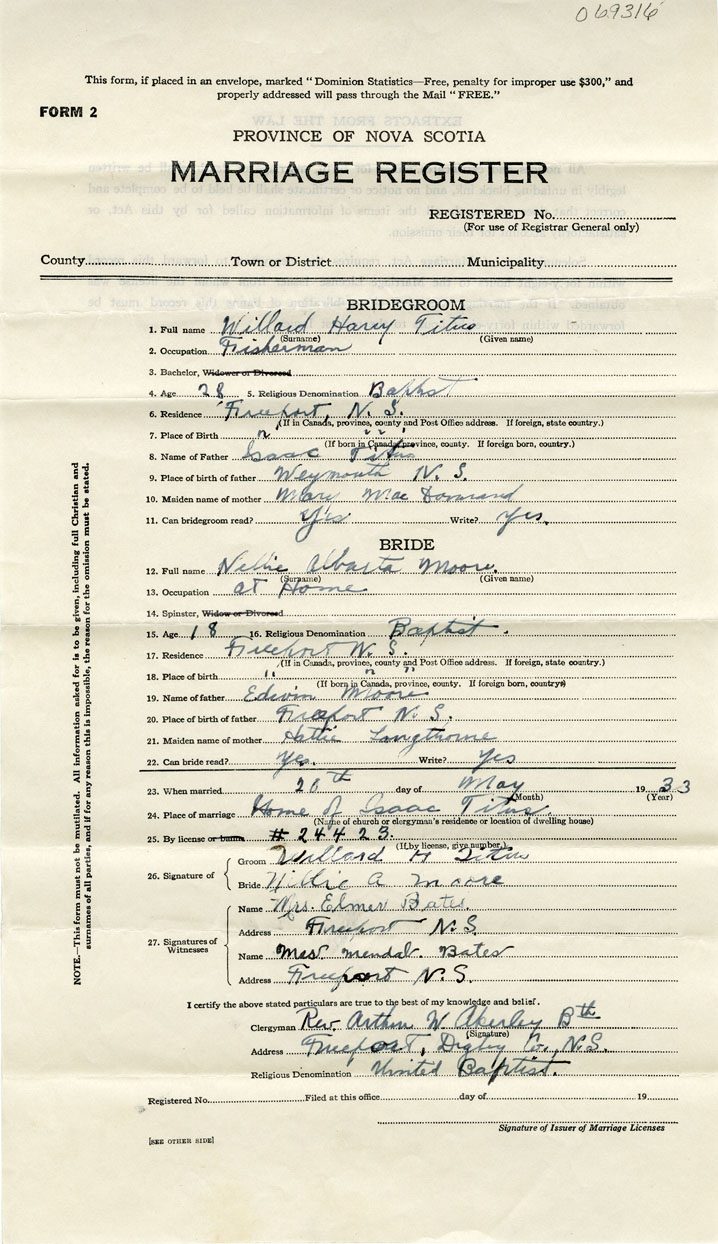 069316
This form, if placed in an envelope, marked "Dominion Statistics—Free, penalty for improper use $300," and
properly addressed will pass through the Mail "FREE."
FORM 2
PROVINCE OF NOVA SCOTIA
MARRIAGE REGISTER
REGISTERED No.
(For use of Registrar General only)
County Town or District Municipality
BRIDEGROOM
1. Full name Willard Harry Titus
(Surname) (Given name)
2. Occupation Fisherman
3. Bachelor, Widower or Divorced
4. Age 28 5. Religious Denomination Baptist
6. Residence Freeport, N. S.
(If in Canada, province, county and Post Office address. If foreign, state country.)
7. Place of Birth " " "
(If born in Canada, province, county. If foreign born, country.)
8. Name of Father Isaac Titus
9. Place of birth of father Weymouth N. S.
10. Maiden name of mother Mary Mac
11. Can bridegroom read? Yes Write? yes.
BRIDE
12. Full name Nellie Alberta Moore.
(Surname) (Given name)
13. Occupation at Home
14. Spinster, Widow or Divorced
15. Age 18 16. Religious Denomination Baptist.
17. Residence Freeport N. S.
(If in Canada, province, county and Post Office address. If foreign, state country.)
18. Place of birth " " "
(If born in Canada, province, county. If foreign born, country)
19. Name of father Edwin Moore
20. Place of birth of father Freeport N. S.
21. Maiden name of mother Hattie Langthorne
22. Can bride read? Yes. Write? Yes
23. When married 20th day of May 1933
(Month) (Year)
24. Place of marriage Home of Isaac Titus
(Name of church or clergyman's residence or location of dwelling house)
25. By license or banns # 24423.
(If by license, give number.)
26. Signature of
Groom Willard H Titus
Bride Nellie A Moore
27. Signatures of Witnesses
Name Mrs. Elmer Bates.
Address Freeport N.S.
Name Mrs. Mendal. Bates
Address Freeport N.S.
I certify the above stated particulars are true to the best of my knowledge and belief.
Clergyman Rev. Arthur W. Akerley Bth
(Signature)
Address Freeport, Digby Co., N.S.
Religious Denomination United Baptist.
Registered No. Filed at this office day of 19
Signature of Issuer of Marriage Licenses
[SEE OTHER SIDE]
NOTE.—This form must not be mutilated. All information asked for is to be given, including full Christian and
surnames of all parties, and if for any reason this is impossible, the reason for the omission must be stated.